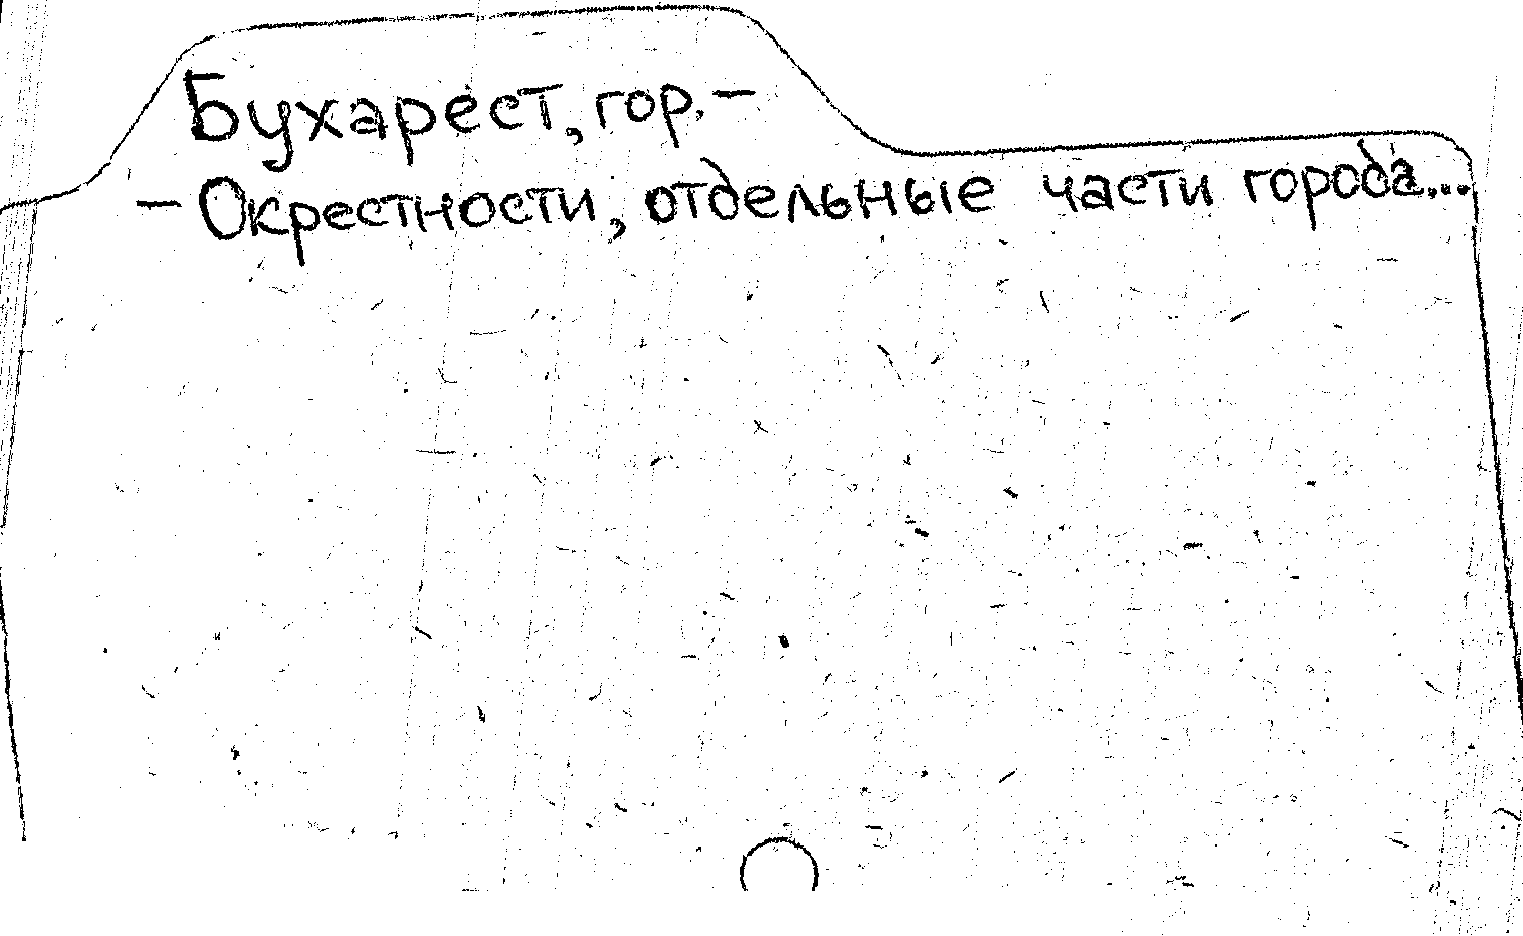 Бухарест, гор. –
– Окрестности, отдельные части города...